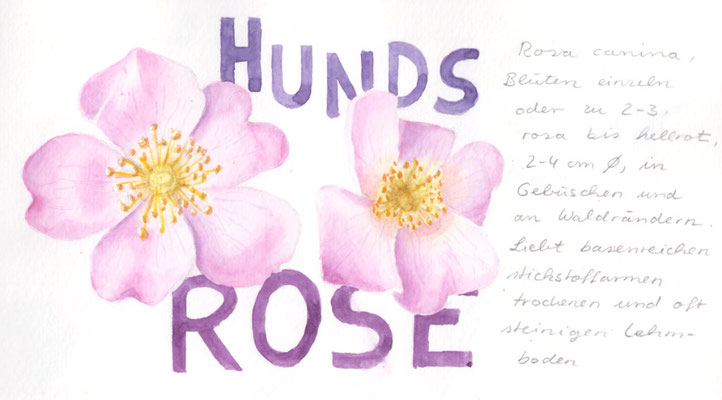 HUNDS
ROSE
Rosa canina,
Blüten einzeln
oder zu 2-3,
rosa bis hellrot,
2-4 cm ∅, in
Gebüschen und
an Waldrändern.
Liebt basenreichen
stickstoffarmen
trockenen und oft
steinigen Lehm-
boden